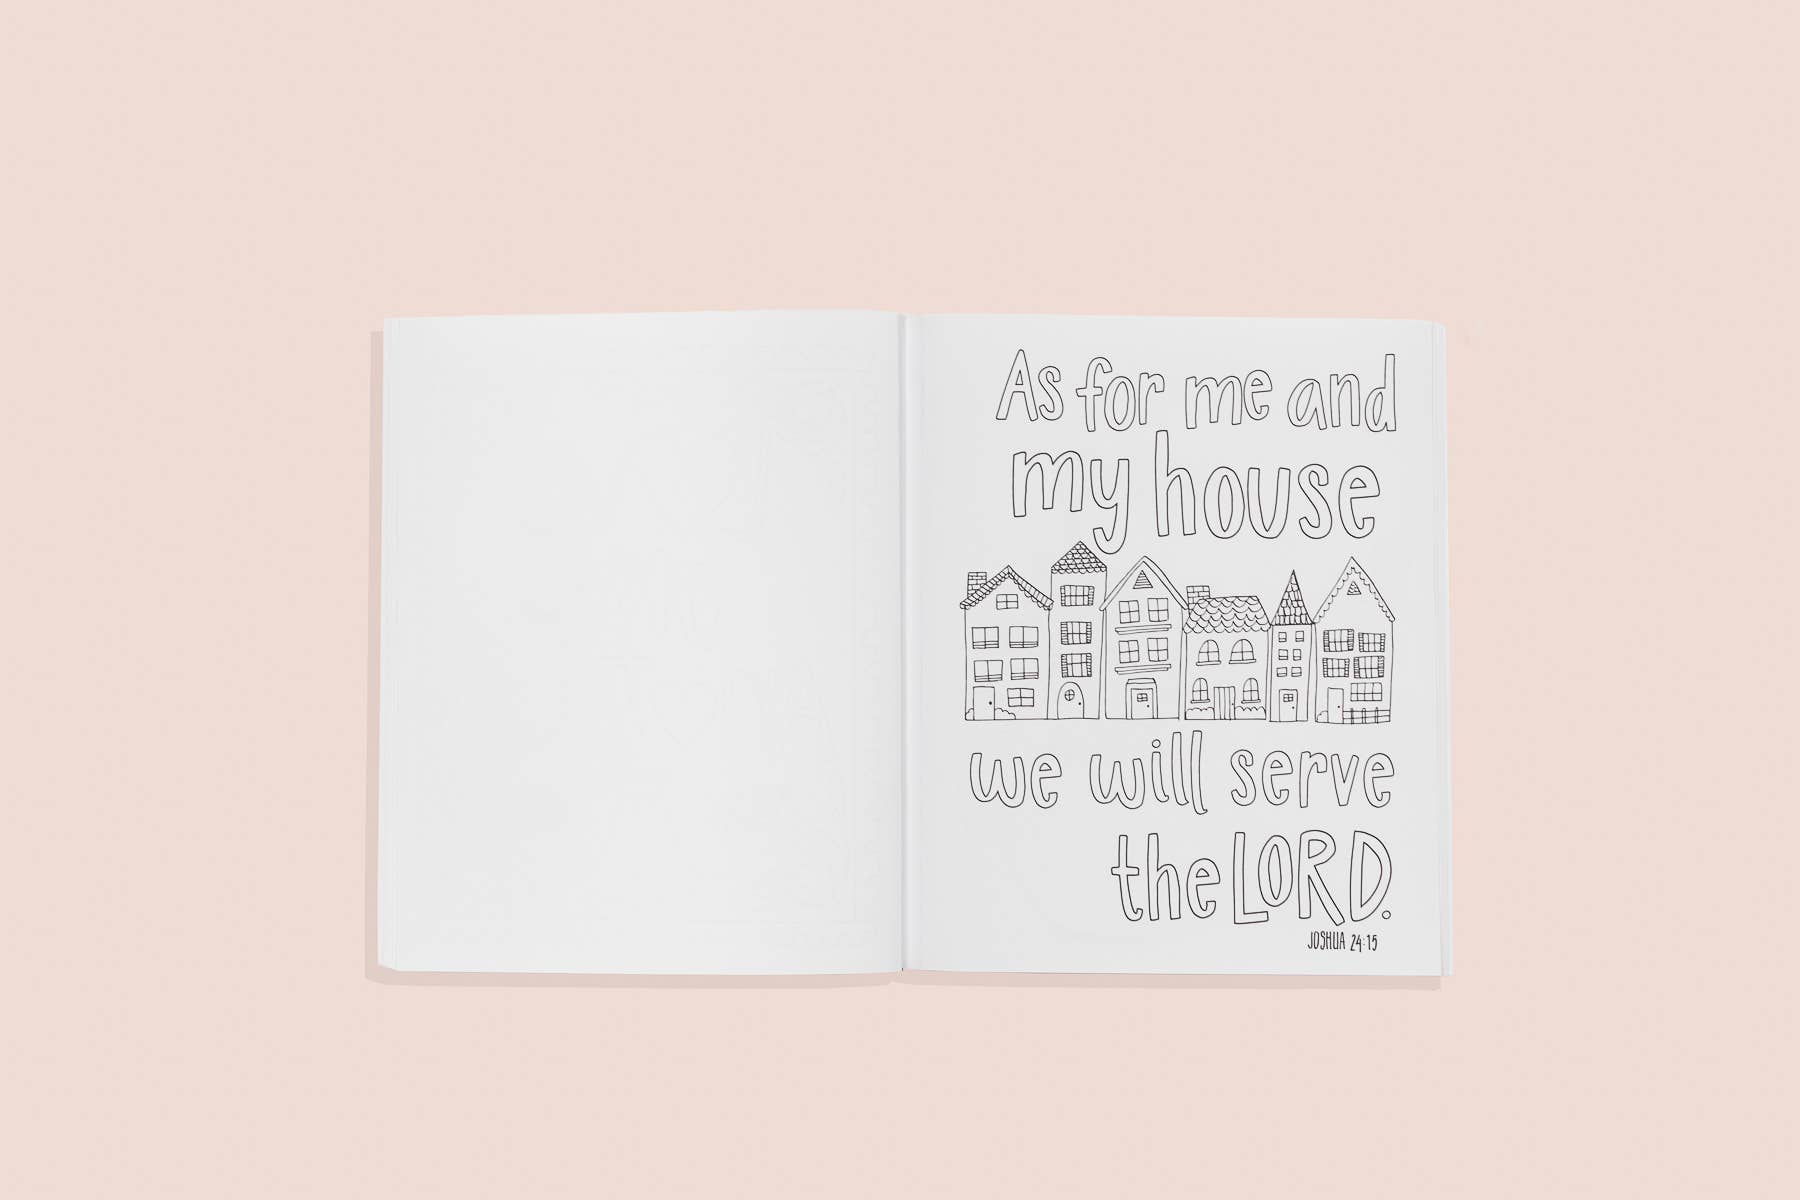 As for me and
my house
we will serve
the LORD.
JOSHUA 24:15